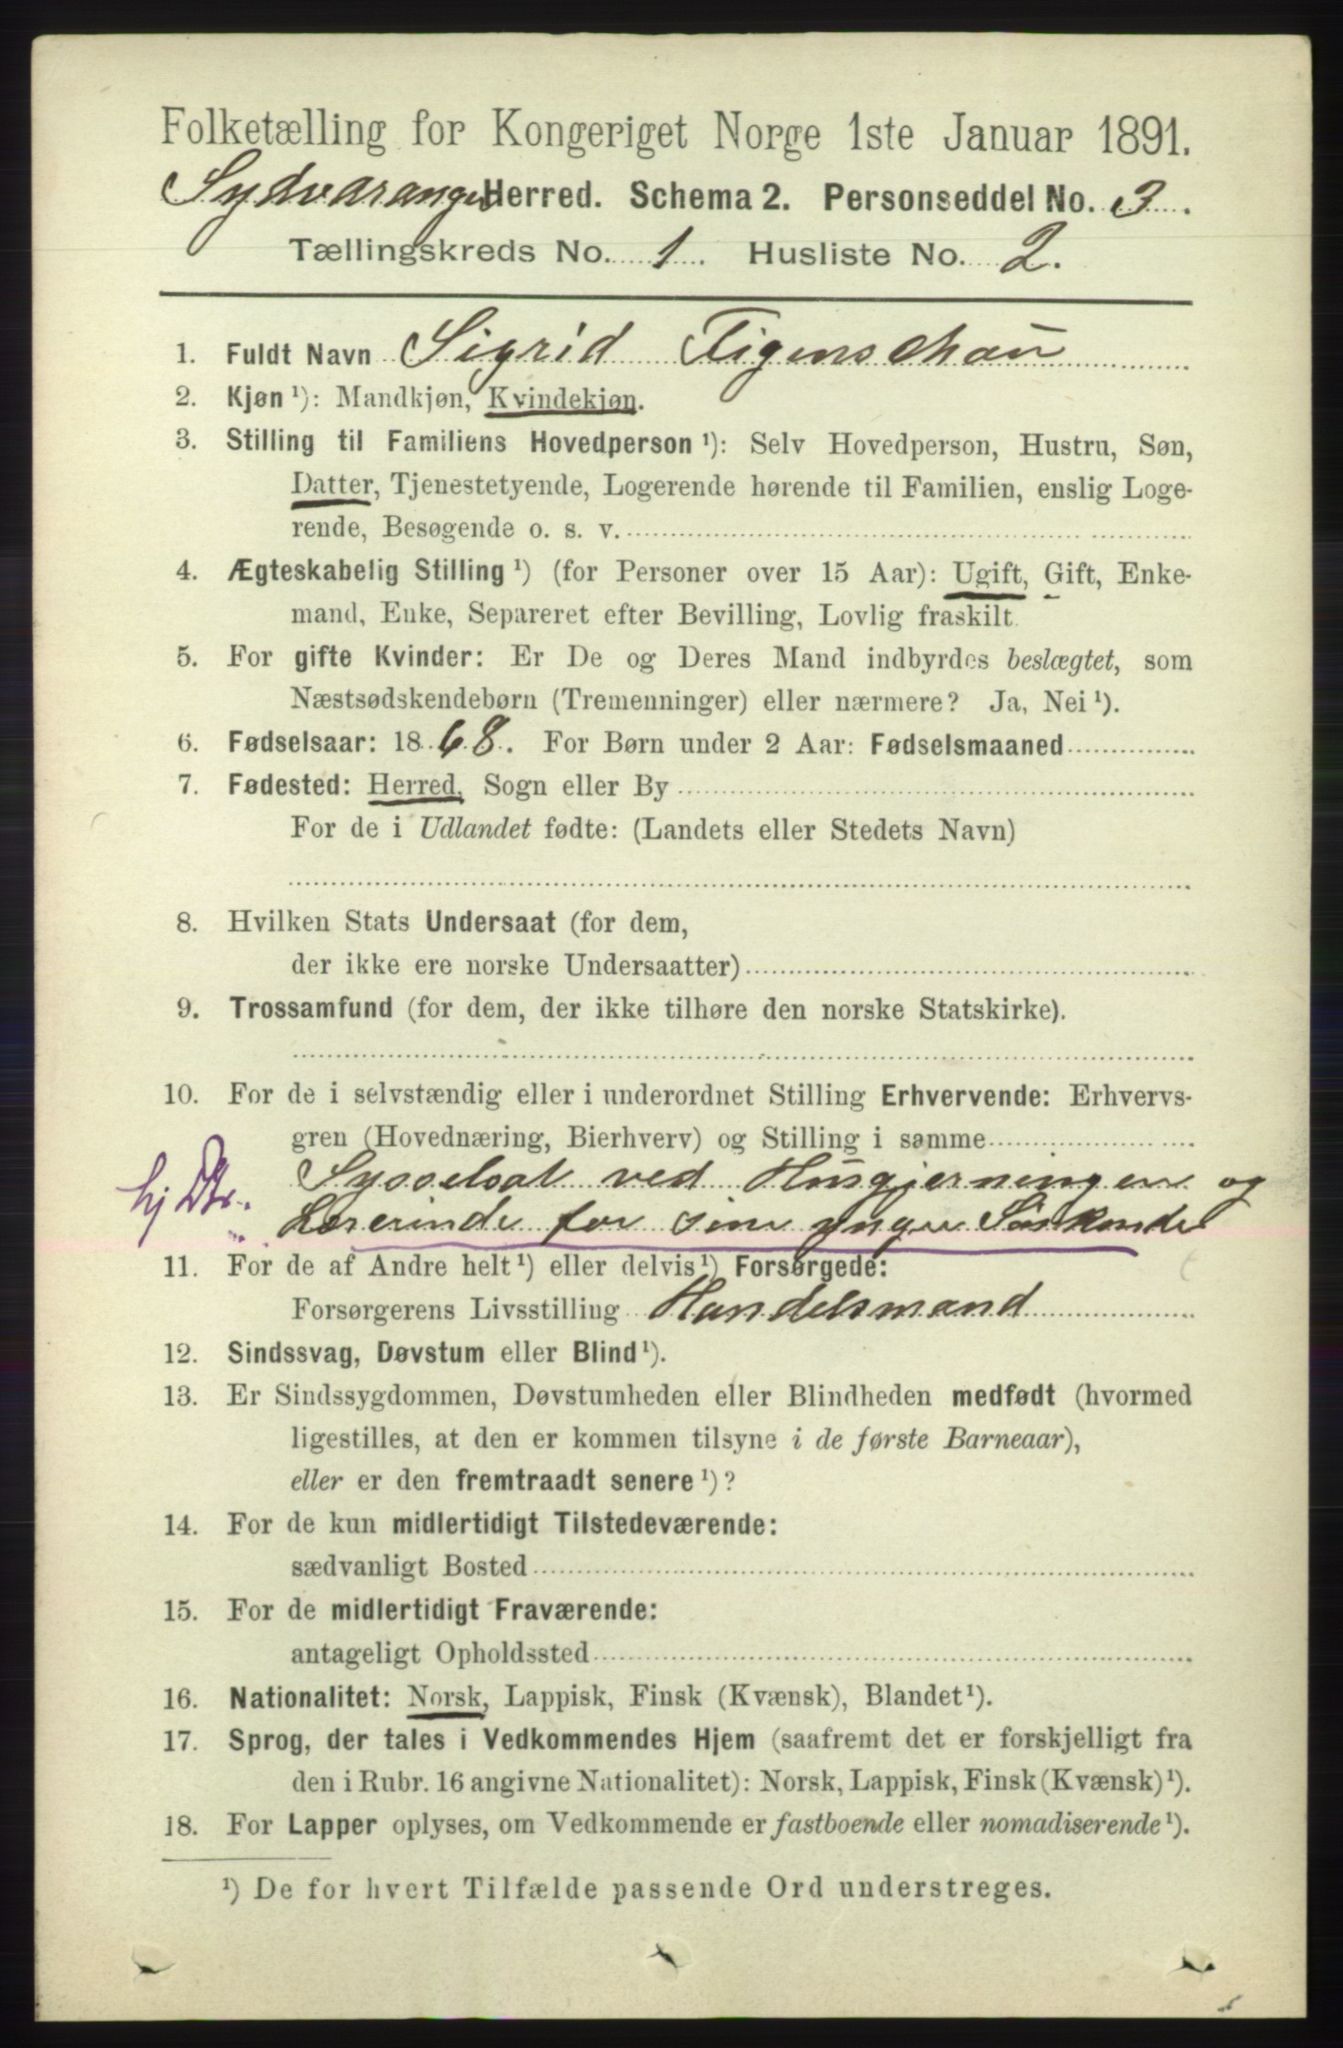 Folketælling for Kongeriget Norge 1ste Januar 1891.
Sydvaranger Herred. Schema 2. Personseddel No. 3.
Tællingskreds No. 1. Husliste No. 2.
1. Fuldt Navn Sigrid Figenschau
2. Kjøn ¹): Mandkjøn, Kvindekjøn.
3. Stilling til Familiens Hovedperson ¹): Selv Hovedperson, Hustru, Søn,
Datter, Tjenestetyende, Logerende hørende til Familien, enslig Loge-
rende, Besøgende o. s. v.
4. Ægteskabelig Stilling ¹) (for Personer over 15 Aar): Ugift, Gift, Enke-
mand, Enke, Separeret efter Bevilling, Lovlig fraskilt.
5. For gifte Kvinder: Er De og Deres Mand indbyrdes beslægtet, som
Næstsødskendebørn (Tremenninger) eller nærmere? Ja, Nei ¹).
6. Fødselsaar: 1868. For Børn under 2 Aar: Fødselsmaaned
7. Fødested: Herred, Sogn eller By
For de i Udlandet fødte: (Landets eller Stedets Navn)
8. Hvilken Stats Undersaat (for dem,
der ikke ere norske Undersaatter)
9. Trossamfund (for dem, der ikke tilhøre den norske Statskirke).
10. For de i selvstændig eller i underordnet Stilling Erhvervende: Erhvervs-
gren (Hovednæring, Bierhverv) og Stilling i samme
hj Dtr. Sysselsat ved Husgjerningen og
Lærerinde for sine yngre Søskende
11. For de af Andre helt ¹) eller delvis ¹) Forsørgede:
Forsørgerens Livsstilling Handelsmand
12. Sindssvag, Døvstum eller Blind ¹).
13. Er Sindssygdommen, Døvstumheden eller Blindheden medfødt (hvormed
ligestilles, at den er kommen tilsyne i de første Barneaar),
eller er den fremtraadt senere ¹)?
14. For de kun midlertidigt Tilstedeværende:
sædvanligt Bosted
15. For de midlertidigt Fraværende:
antageligt Opholdssted
16. Nationalitet: Norsk, Lappisk, Finsk (Kvænsk), Blandet ¹).
17. Sprog, der tales i Vedkommendes Hjem (saafremt det er forskjelligt fra
den i Rubr. 16 angivne Nationalitet): Norsk, Lappisk, Finsk (Kvænsk) ¹).
18. For Lapper oplyses, om Vedkommende er fastboende eller nomadiserende ¹).
¹) De for hvert Tilfælde passende Ord understreges.